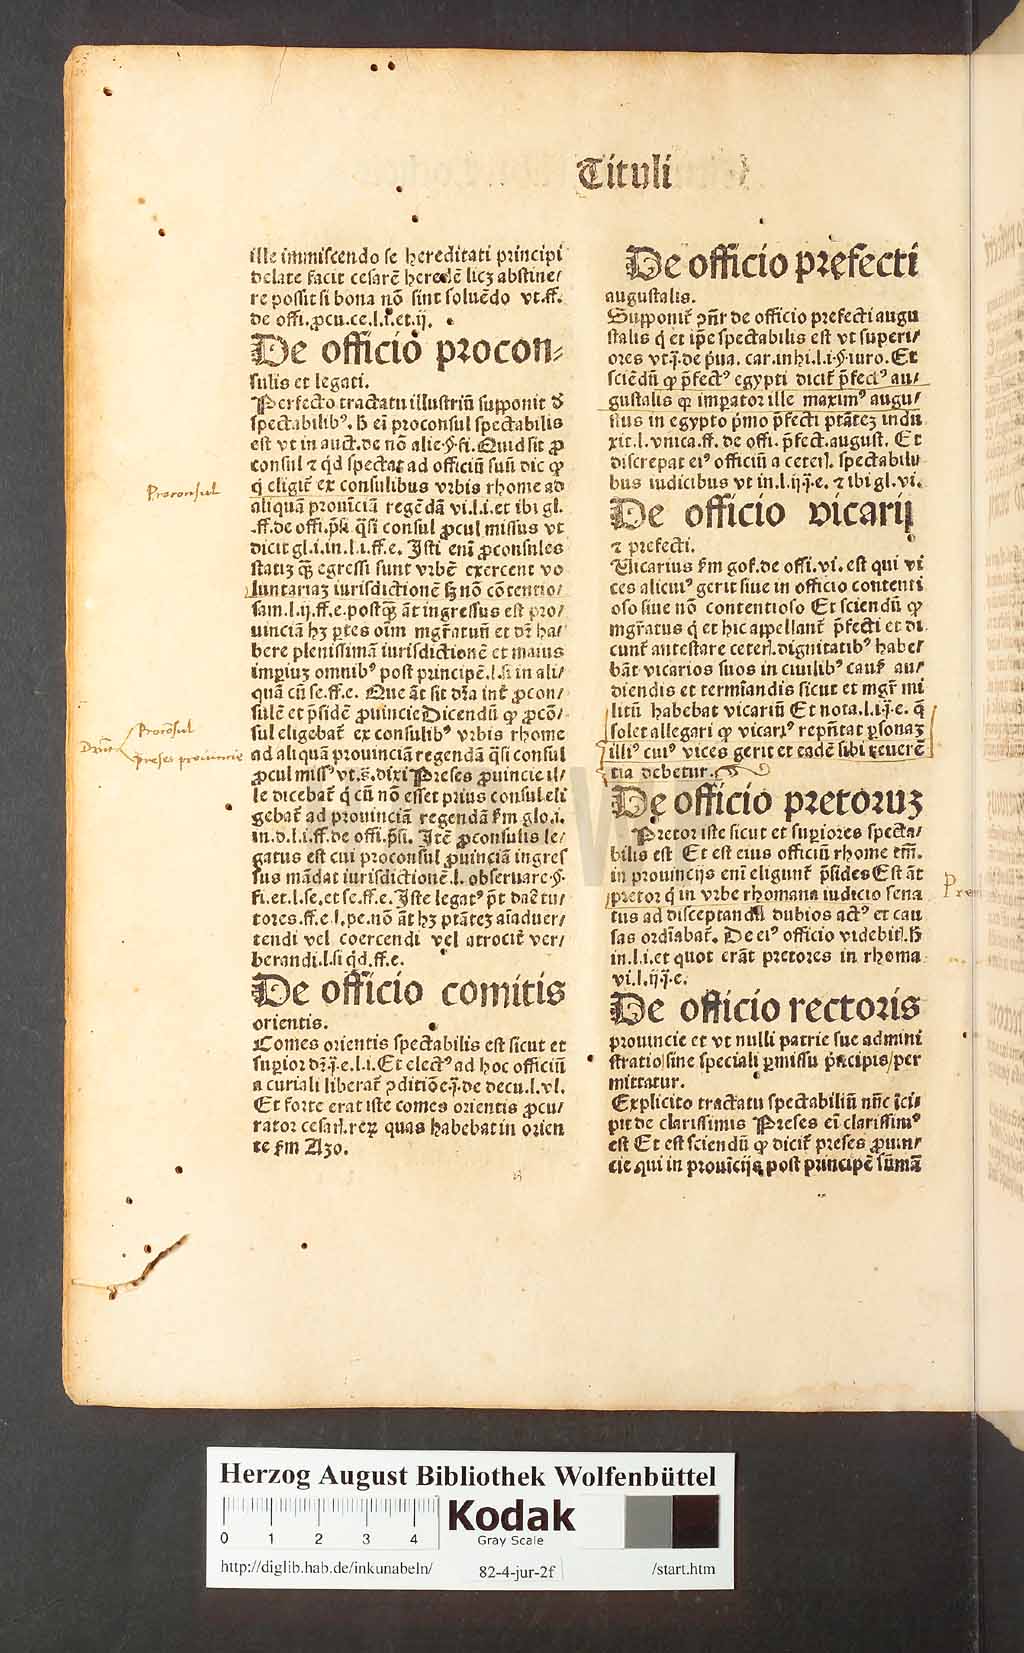 Tituli
ille immiscendo se hereditati principi
delate facit cesarē heredē licꝫ abstine/
re possit si bona nō sint soluēdo vt.ff.
de offi.ꝓcu.ce.l.i.et.ij.
De officio procon⸗
sulis et legati.
Perfecto tractatu illustriū supponit
spectabilibꝰ. eī proconsul spectabilis
est vt in auct.de nō alie.§.fi.Quid sit ꝓ
consul ⁊ qd spectat ad officiū suū dic ꝙ
q̇ eligit̄ ex consulibus vrbis rhome ad
aliquā prouīciā regēdā vi.l.i.et ibi gl.
.ff.de offi.p̄si. q̄si consul ꝓcul missus vt
dicit gl.i.in.l.i.ff.e. Isti enī ꝓconsules
statiꝫ egressi sunt vrbē exercent vo
luntariaꝫ iurisdictionē nō cōtentio/
sam.l.ij.ff.e.postq̄ᷓ āt ingressus est pro/
uinciā hꝫ ptes oīm mgr̄atuū et dr̄ ha/
bere plenissimā iurisdictionē et maius
imperiuꝫ omnibꝰ post principē.l.si in ali/
quā cū se.ff.e. Que āt sit dr̄a int̄ ꝓcon/
sulē et p̄sidē ꝓuincie Dicendū ꝙ ꝓcō/
sul eligebat̄ ex consulibꝰ vrbis rhome
ad aliquā prouinciā regendā q̄si consul
ꝓcul missꝰ vt.s̄.dixi Preses ꝓuincie il/
le dicebat̄ q̇ cū nō esset prius consul eli
gebat̄ ad prouinciā regendā fm glo.i.
in.d.l.i.ff.de offi.p̄si. Itē ꝓconsulis le/
gatus est cui proconsul ꝓuinciā ingres
sus mādat iurisdictionē.l. obseruare.§.
fi.et.l.se.et se.ff.e. Iste legatꝰ p̄t daē tu/
tores.ff.e.l.pe.nō āt hꝫ ptātez aīaduer/
tendi vel coercendi vel atrocit̄ ver/
berandi.l.si qd.ff.e.
De officio comitis
orientis.
Comes orientis spectabilis est sicut et
superior dr̄.q̄.e.l.i.Et electꝰ ad hoc officiū
a curiali liberat̄ ꝯditiōe.q̄.de decu.l.vl.
Et forte erat iste comes orientis ꝓcu/
rator cesaris rerum quas habebat in orien
te fm Azo.
De officio pręfecti
augustalis.
Supponit̄ ꝯn̄r de officio prefecti augu
stalis q̇ et ip̄e spectabilis est vt superi/
ores vt.q̄.de p̄ua. car.inhi.l.i.§.iuro. Et
sciēdū ꝙ p̄fectꝰ egypti dicit̄ p̄fectꝰ au/
gustalis ꝙ imperator ille maximꝰ augu/
stus in egypto p̄mo p̄fecti ptātez indu
xit.l.vnica.ff. de offi. p̄fect.august. Et
discrepat eiꝰ officiū a ceteris spectabili
bus iudicibus vt in.l.ij.q̄.e. ⁊ ibi gl.vi.
De officio vicarij
⁊ prefecti.
Vicarius fm gof.de offi.vi. est qui vi
ces alicuiꝰ gerit siue in officio contenti
oso siue nō contentioso Et sciendū ꝙ
mgr̄atus q̇ et hic appellant̄ p̄fecti et di
cunt̄ antestare ceteris dignitatibꝰ habe/
bāt vicarios suos in ciuilibꝰ caus̄ au/
diendis et termīandis sicut et mgr̄ mi
litū habebat vicariū Et nota.l.i.q̄.e. q̄
solet allegari ꝙ vicariꝰ repn̄tat ꝑsonaꝫ
illiꝰ cuiꝰ vices gerit et eadē sibi reuerē
tia debetur.
Dę officio pretoruꝫ
Pretor iste sicut et superiores specta/
bilis est Et est eius officiū rhome tm̄.
in prouincijs eni eligunt̄ p̄sides Est āt
pretor q̇ in vrbe rhomana iudicio sena
tus ad disceptandū dubios actꝰ et cau
sas ordīabat̄. De eiꝰ officio videbis
in.l.i.et quot erāt pretores in rhoma
vi.l.ij.q̄.e.
De officio rectoris
prouincie et vt nulli patrie sue admini
stratio sine speciali ꝑmissu p̄ncipis per
mittatur.
Explicito tractatu spectabiliū nūc īci/
pit de clarissimis Preses eī clarissimꝰ
est Et est sciendū ꝙ dicit̄ preses ꝓuin/
cie qui in prouīcijs post principē sūmā
Proconsul
Proconsul
Preses prouincie
Herzog August Bibliothek Wolfenbüttel
0 1 2 3 4
Kodak
Gray Scale
http://diglib.hab.de/inkunabeln/ 82-4-jur-2f /start.htm